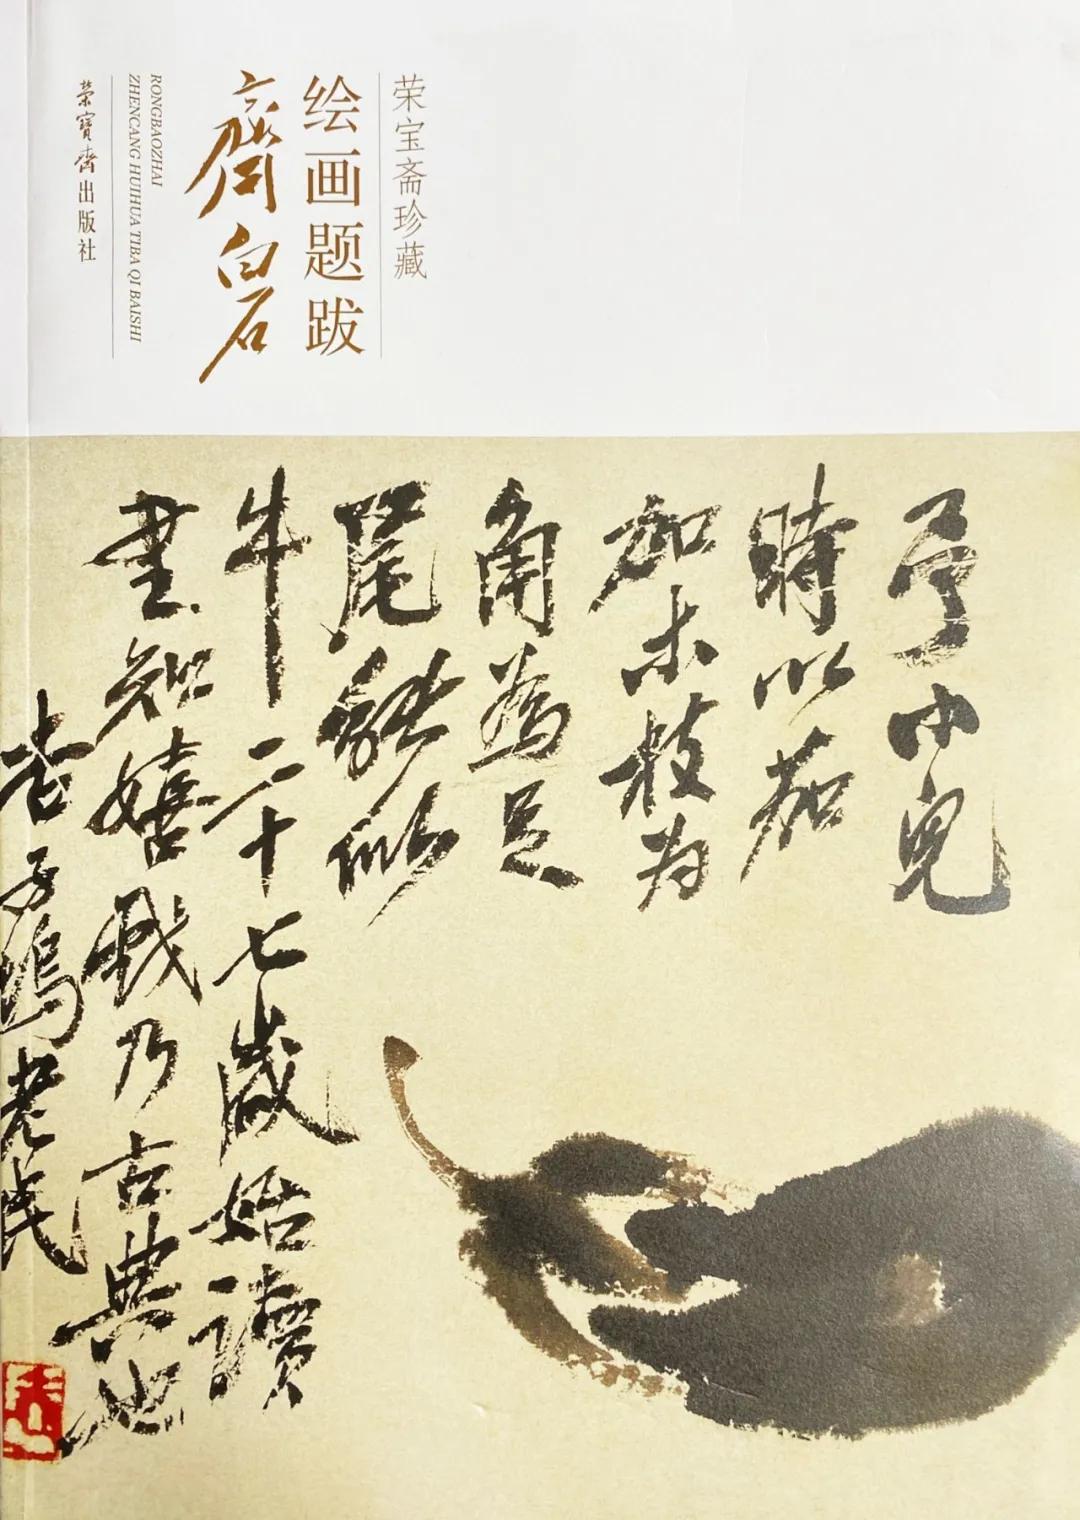 荣宝斋珍藏
绘画题跋
齊白石
RONGBAOZHAI
ZHENCANG HUIHUA TIBA QI BAISHI
荣寶齋出版社
予小兒
時以茄
加木枝为
角為足
尾能似
牛二十七歲始讀
書知嬉戲乃古典也
杏子塢老民